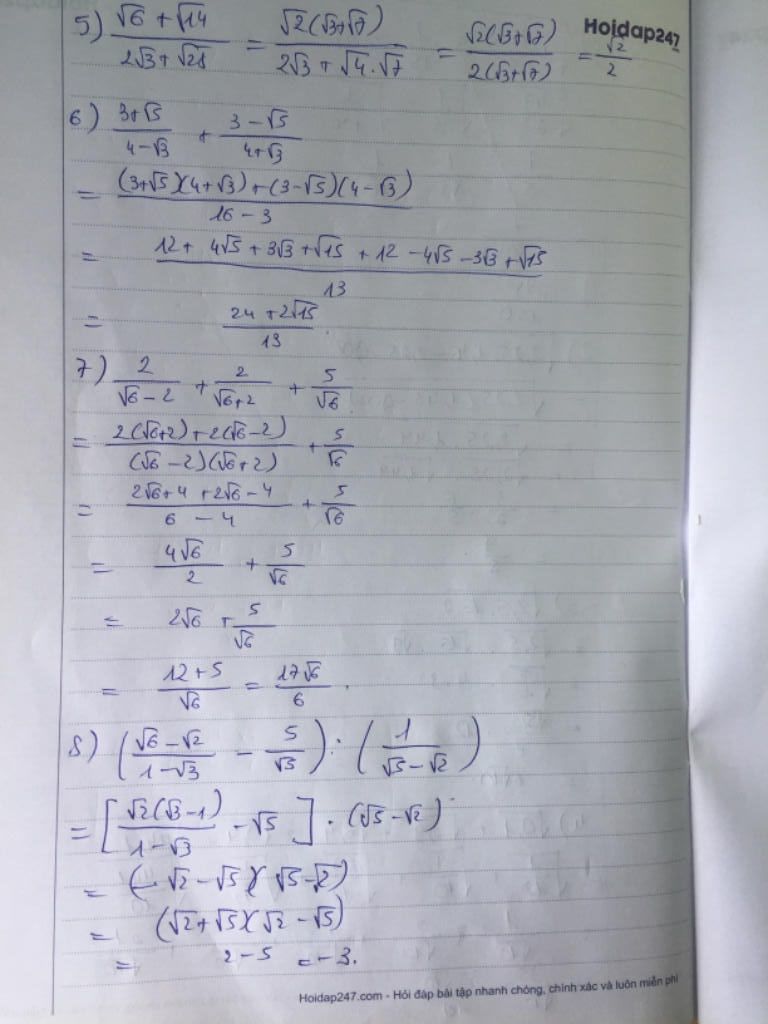 Hoidap247
5) (√6 + √14)/(2√3 + √28) = √2(√3+√7)/(2√3 + √4.√7) = √2(√3+√7)/2(√3+√7) = √2/2
6) (3+√5)/(4-√3) + (3-√5)/(4+√3)
= ((3+√5)(4+√3) + (3-√5)(4-√3))/(16-3)
= (12 + 4√5 + 3√3 + √15 + 12 - 4√5 - 3√3 + √15)/13
= (24 + 2√15)/13.
7) 2/(√6-2) + 2/(√6+2) + 5/√6
= (2(√6+2) + 2(√6-2))/((√6-2)(√6+2)) + 5/√6
= (2√6+4 + 2√6-4)/(6-4) + 5/√6
= 4√6/2 + 5/√6
= 2√6 + 5/√6
= (12+5)/√6 = 17√6/6.
8) ((√6-√2)/(1-√3) - 5/√5) : (1/(√5-√2))
= [√2(√3-1)/(1-√3) - √5] . (√5-√2)
= (-√2-√5)(√5-√2)
= (√2+√5)(√2-√5)
= 2-5 = -3.
Hoidap247.com - Hỏi đáp bài tập nhanh chóng, chính xác và luôn miễn phí